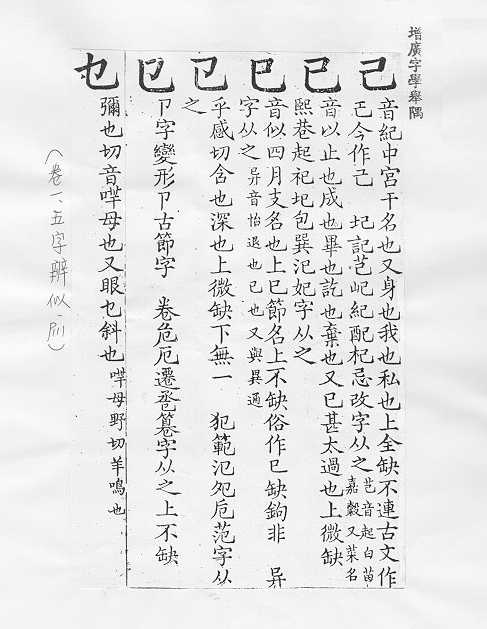 增廣字學舉隅
己
音紀中宮干名也又身也我也私也上全缺不連古文作
𢀒今作己 圮記芑屺紀配杞忌改字从之 芑音起白苗嘉穀又菜名
已
音以止也成也畢也訖也棄也又已甚太過也上微缺
熙巷起祀圯包巽汜妃字从之
巳
音似四月支名也上巳節名上不缺俗作巳缺鉤非 异
字从之 异音怡退也已也又與異通
㔾
乎感切含也深也上微缺下無一 犯範氾夗卮范字从
之
卩字變形卩古節字 卷危厄遷卺篹字从之上不缺
乜
彌也切音哶母也又眼乜斜也 哶母野切羊鳴也
(卷一、五字辨似、